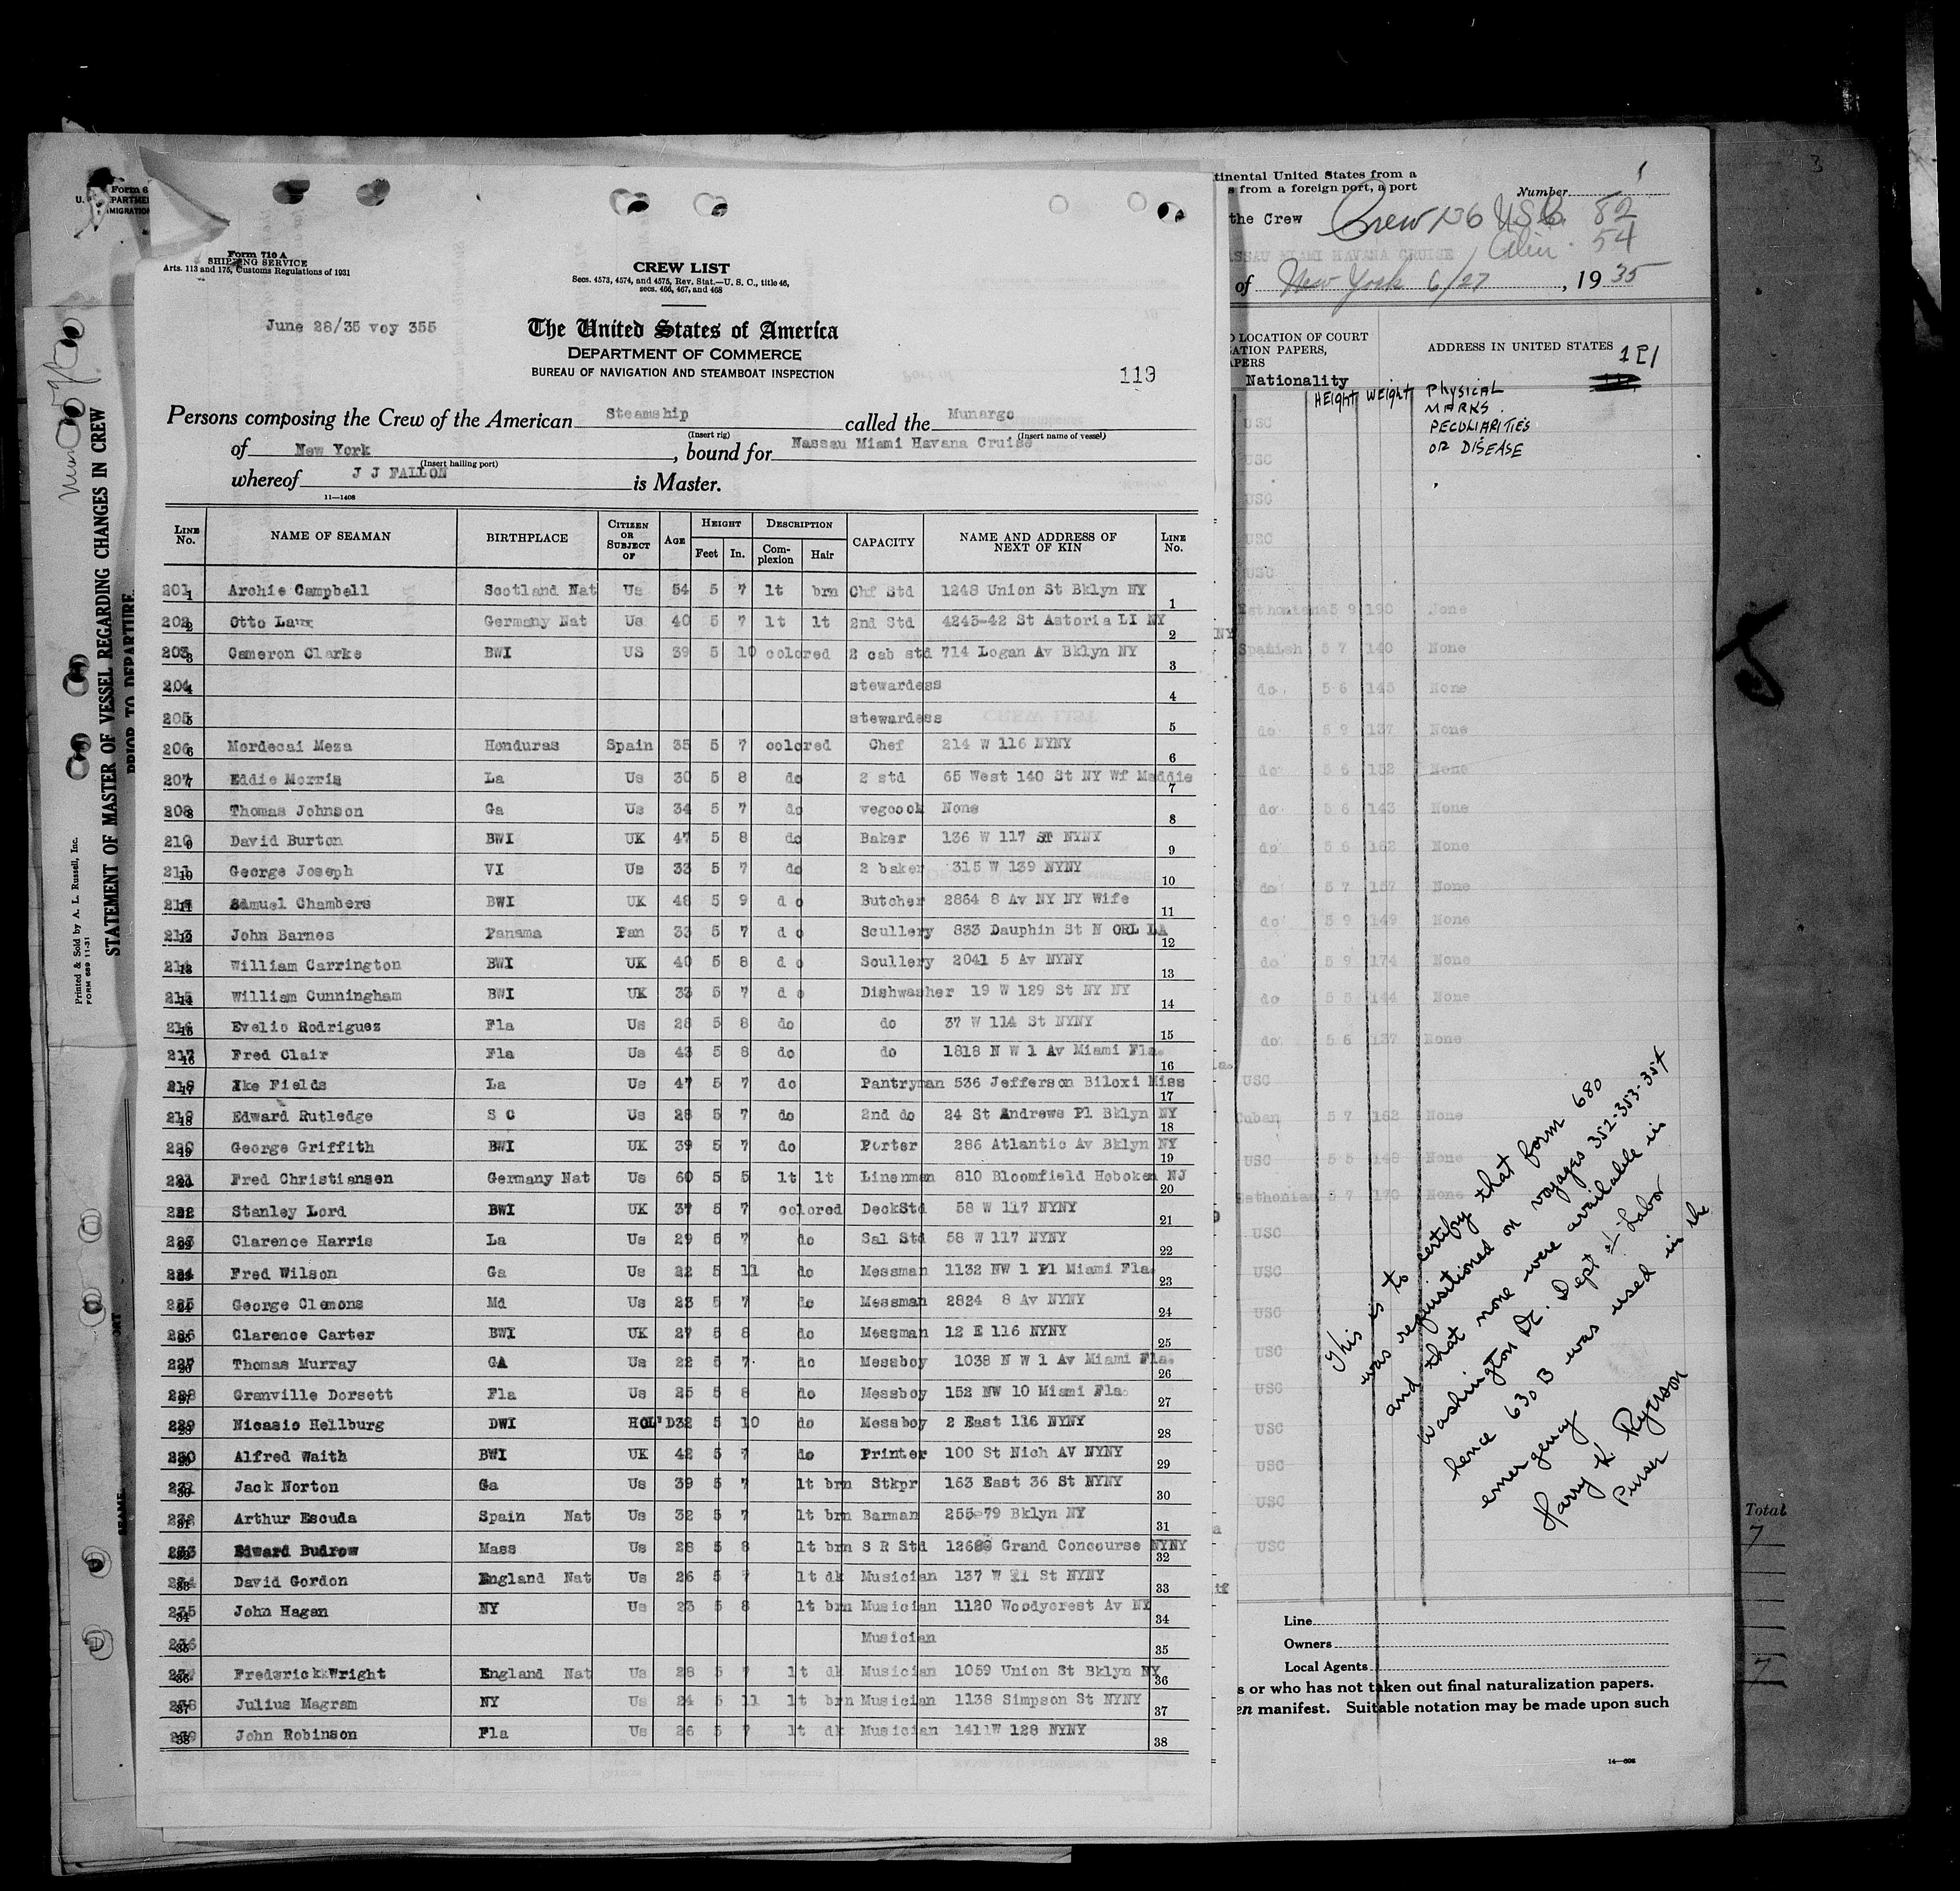 Form 710 A
SHIPPING SERVICE
Arts. 113 and 175, Customs Regulations of 1931
CREW LIST
Secs. 4573, 4574, and 4575, Rev. Stat.—U. S. C., title 46,
secs. 466, 467, and 468
June 28/35 voy 355
The United States of America
DEPARTMENT OF COMMERCE
BUREAU OF NAVIGATION AND STEAMBOAT INSPECTION
119
Persons composing the Crew of the American Steamship called the Munargo
(Insert rig) (Insert name of vessel)
of New York, bound for Nassau Miami Havana Cruise
(Insert hailing port)
whereof J J FALLON is Master.
11—1408
LINE No. NAME OF SEAMAN BIRTHPLACE CITIZEN OR SUBJECT OF AGE HEIGHT Feet In. DESCRIPTION Complexion Hair CAPACITY NAME AND ADDRESS OF NEXT OF KIN LINE No.
201 Archie Campbell Scotland Nat Us 54 5 7 lt brn Chf Std 1248 Union St Bklyn NY 1
202 Otto Laux Germany Nat Us 40 5 7 lt lt 2nd Std 4243-42 St Astoria LI NY 2
203 Cameron Clarke BWI US 39 5 10 colored 2 cab std 714 Logan Av Bklyn NY 3
204 stewardess 4
205 stewardess 5
206 Mordecai Meza Honduras Spain 35 5 7 colored Chef 214 W 116 NYNY 6
207 Eddie Morris La Us 30 5 8 do 2 std 65 West 140 St NY Wf Maddie 7
208 Thomas Johnson Ga Us 34 5 7 do vegcook None 8
210 David Burton BWI UK 47 5 8 do Baker 136 W 117 ST NYNY 9
211 George Joseph VI Us 33 5 7 do 2 baker 315 W 139 NYNY 10
Samuel Chambers BWI UK 48 5 9 do Butcher 2864 8 Av NY NY Wife 11
213 John Barnes Panama Pan 33 5 7 do Scullery 833 Dauphin St N ORL LA 12
214 William Carrington BWI UK 40 5 8 do Scullery 2041 5 Av NYNY 13
215 William Cunningham BWI UK 33 5 7 do Dishwasher 19 W 129 St NY NY 14
216 Evelio Rodriguez Fla Us 28 5 8 do do 37 W 114 St NYNY 15
217 Fred Clair Fla Us 43 5 8 do do 1818 N W 1 Av Miami Fla. 16
218 Ike Fields La Us 47 5 7 do Pantryman 536 Jefferson Biloxi Miss 17
219 Edward Rutledge S C Us 28 5 7 do 2nd do 24 St Andrews Pl Bklyn NY 18
220 George Griffith BWI UK 39 5 7 do Porter 286 Atlantic Av Bklyn NY 19
221 Fred Christiansen Germany Nat Us 60 5 5 lt lt Linenman 810 Bloomfield Hoboken NJ 20
222 Stanley Lord BWI UK 37 5 7 colored DeckStd 58 W 117 NYNY 21
223 Clarence Harris La Us 29 5 7 do Sal Std 58 W 117 NYNY 22
224 Fred Wilson Ga Us 22 5 11 do Messman 1132 NW 1 Pl Miami Fla. 23
225 George Clemons Md Us 23 5 7 do Messman 2824 8 Av NYNY 24
226 Clarence Carter BWI UK 27 5 8 do Messman 12 E 116 NYNY 25
227 Thomas Murray GA Us 22 5 7 do Messboy 1038 N W 1 Av Miami Fla. 26
228 Granville Dorsett Fla Us 25 5 8 do Messboy 152 NW 10 Miami Fla. 27
229 Nicasio Hellburg DWI HOL'D 32 5 10 do Messboy 2 East 116 NYNY 28
230 Alfred Waith BWI UK 42 5 7 do Printer 100 St Nich AV NYNY 29
231 Jack Norton Ga Us 39 5 7 lt brn Stkpr 163 East 36 St NYNY 30
232 Arthur Escuda Spain Nat Us 32 5 7 lt brn Barman 255-79 Bklyn NY 31
233 Edward Budrow Mass Us 28 5 8 lt brn S R Std Grand Concourse NYNY 32
234 David Gordon England Nat Us 26 5 7 lt dk Musician 137 W St NYNY 33
235 John Hagan NY Us 23 5 8 lt brn Musician 1120 Woodycrest Av NY 34
236 Musician 35
237 Frederick Wright England Nat Us 28 5 7 lt dk Musician 1059 Union St Bklyn NY 36
238 Julius Magram NY Us 24 5 11 lt brn Musician 1138 Simpson St NYNY 37
239 John Robinson Fla Us 26 5 7 lt dk Musician 1411W 128 NYNY 38
Printed & Sold by A. L. Russell, Inc.
FORM 689 11-31
STATEMENT OF MASTER OF VESSEL REGARDING CHANGES IN CREW
PRIOR TO DEPARTURE
tinental United States from a
s from a foreign port, a port
Number 1
the Crew Crew 136 USC. 82
Alien 54
SSAU MIAMI HAVANA CRUISE
of New York 6/27, 1935
LOCATION OF COURT
ATION PAPERS,
APERS
ADDRESS IN UNITED STATES
Nationality HEIGHT WEIGHT PHYSICAL
MARKS
PECULIARITIES
OR DISEASE
USC
USC
USC
USC
USC
Esthonian 5 9 190 None
Spanish 5 7 140 None
do 5 6 145 None
do 5 9 137 None
do 5 6 152 None
do 5 6 143 None
do 5 6 162 None
do 5 7 157 None
do 5 9 149 None
do 5 9 174 None
do 5 5 144 None
do 5 6 137 None
USC
Cuban 5 7 162 None
USC 5 5 148 None
Esthonian 5 7 170 None
USC
USC
USC
USC
USC
USC
USC
USC
USC
This is to certify that form 680
was requisitioned on voyages 352-353-354
and that none were available in
Washington Dc. Dept of Labor
hence 630 B was used in the
emergency
Harry K Ryerson
Purser
Line
Owners
Local Agents
s or who has not taken out final naturalization papers.
en manifest. Suitable notation may be made upon such
14—608
3
Total
7
7